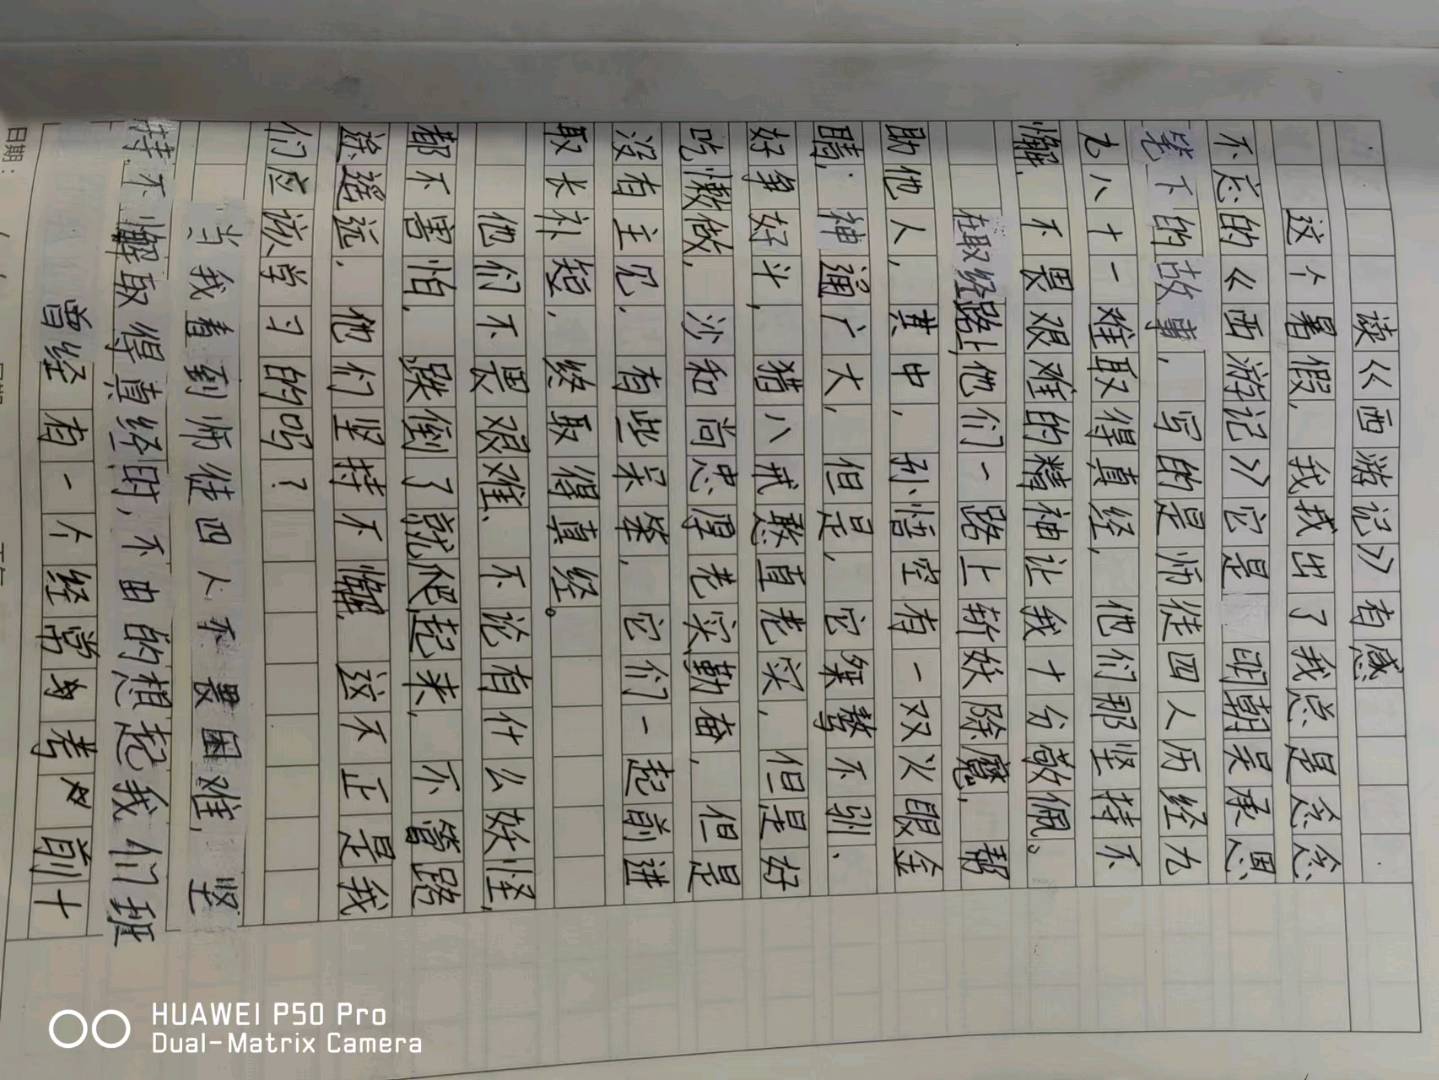 读《西游记》有感
这个暑假，我找出了我总是念念
不忘的《西游记》它是 明朝吴承恩
笔下的故事，写的是师徒四人历经九
九八十一难取得真经，他们那坚持不
懈，不畏艰难的精神让我十分敬佩。
在取经路上他们一路上斩妖除魔，帮
助他人，其中，孙悟空有一双火眼金
睛，神通广大，但是，它桀骜不驯、
好争好斗，猪八戒憨直老实，但是好
吃懒做，沙和尚忠厚老实勤奋，但是
没有主见，有些呆笨，它们一起前进
取长补短，终取得真经。
他们不畏艰难、不论有什么妖怪，
都不害怕，跌倒了就爬起来，不管路
途遥远，他们坚持不懈，这不正是我
们应该学习的吗？
当我看到师徒四人不畏困难，坚
持不懈取得真经时，不由的想起我们班
曾经有一个经常考前十
日期：
HUAWEI P50 Pro
Dual-Matrix Camera